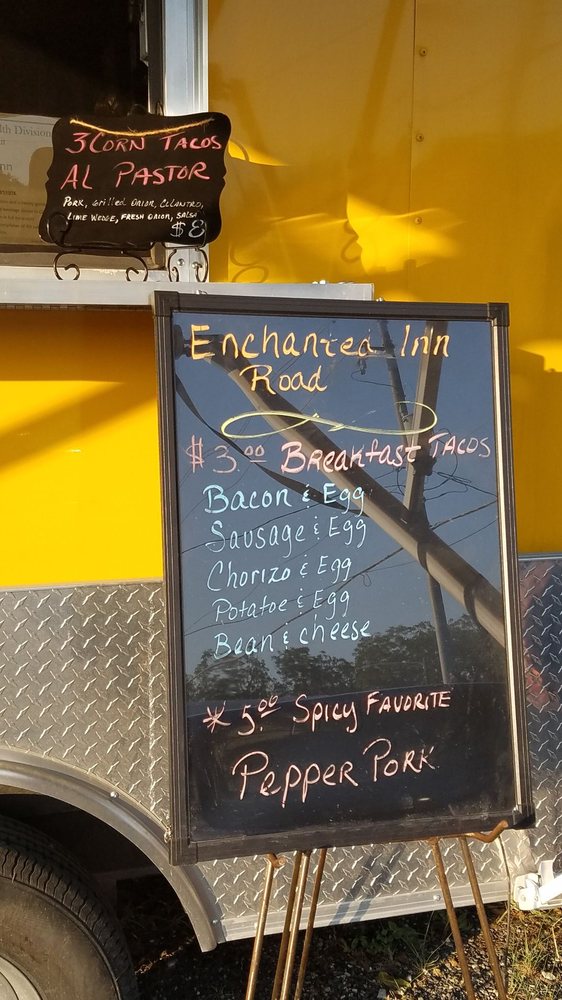 lth Division
nn
3 CORN TACOS
AL PASTOR
PORK, GRILLED ONION, CILANTRO,
LIME WEDGE, FRESH ONION, SALSA
$8
Enchanted Inn
Road
$3.00 BREAKFAST TACOS
Bacon & Egg
Sausage & Egg
Chorizo & Egg
Potatoe & Egg
Bean & cheese
* 5.00 Spicy FAVORITE
Pepper Pork